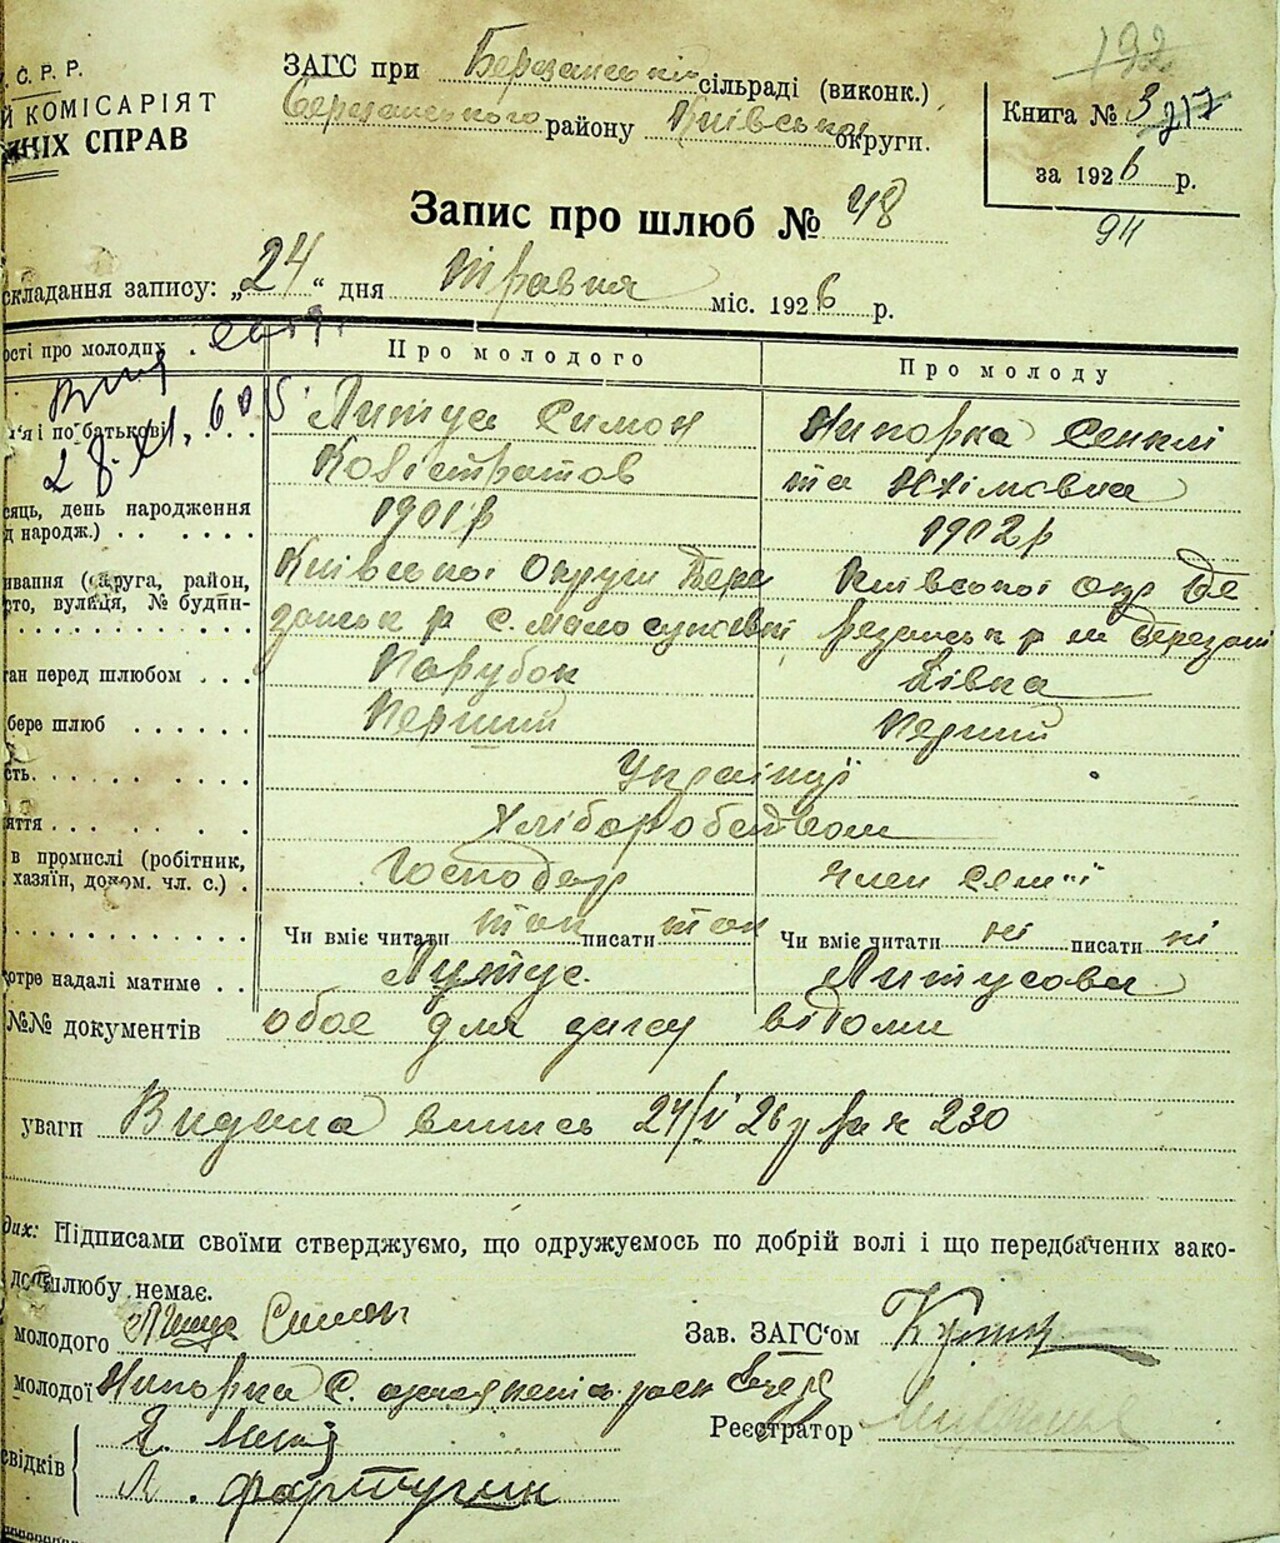 С. Р. Р.
Й КОМІСАРІЯТ
НІХ СПРАВ
ЗАГС при Березанській сільраді (виконк.)
Березанського району Київської округи.
192
Книга № 3 217
за 1926 р.
94
Запис про шлюб № 48
складання запису: „24“ дня Травня міс. 1926 р.
ості про молодих . Про молодого Про молоду
м'я і по батькові . . . Литус Симон Нипорка Сенклі
Калістратов та Юхімовна
28.
сяць, день народження 1901 р 1902 р
д народж.) . . . . . .
ивання (округа, район, Київської Округи Бере Київської окр Бе
сто, вулиця, № будин- заньск р с. Мало супоєвки резаньск р м Березані
ган перед шлюбом . . . Парубок Дівка
бере шлюб . . . . . . Перший Перший
сть. . . . . . . . . Українці
яття . . . . . . . Хліборобством
в промислі (робітник, Господар Член сем'ї
хазяїн, допом. чл. с.) .
Чи вміє читати так писати так Чи вміє читати ні писати ні
отре надалі матиме . . Литус. Литусова
№№ документів обоє для загсу відоми
уваги Видана випись 24/V 26 р за № 230
дих: Підписами своїми стверджуємо, що одружуємось по добрій волі і що передбачених зако-
до шлюбу немає.
молодого Литус Симон
Зав. ЗАГС'ом
молодої Нипорка С.
Реєстратор
свідків
Л. Фартушн